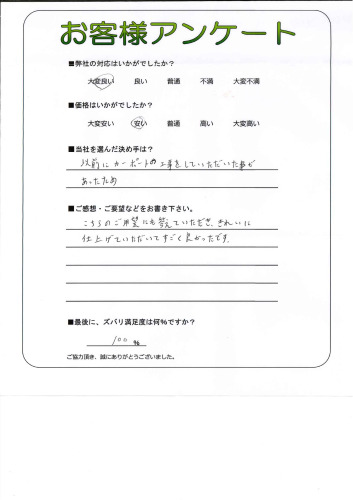 お客様アンケート
■弊社の対応はいかがでしたか？
大変良い 良い 普通 不満 大変不満
■価格はいかがでしたか？
大変安い 安い 普通 高い 大変高い
■当社を選んだ決め手は？
以前にカーポートの工事をしていただいた事が
あったため
■ご感想・ご要望などをお書き下さい。
こちらのご希望にも答えていただき、きれいに
仕上げていただいてすごく良かったです。
■最後に、ズバリ満足度は何%ですか？
100 %
ご協力頂き、誠にありがとうございました。